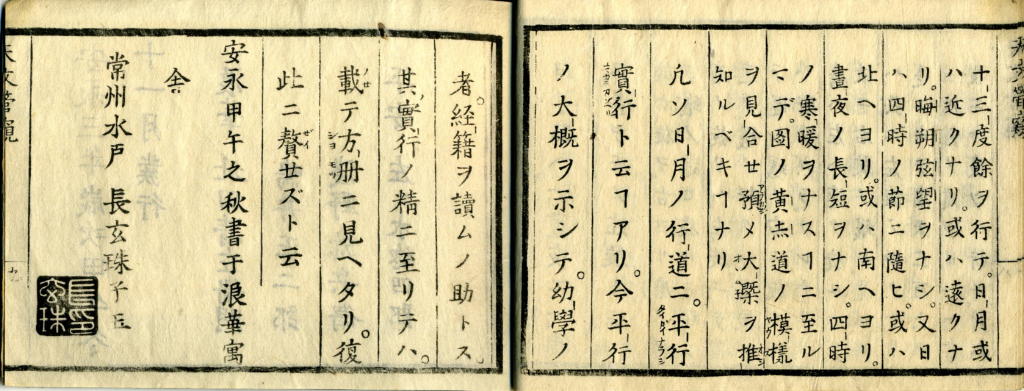 十三度餘ヲ行テ。日月或
ハ近クナリ。或ハ遠クナ
リ。晦朔弦望ヲナシ。又日
ハ四時ノ節ニ隨ヒ。或ハ
北ヘヨリ。或ハ南ヘヨリ。
晝夜ノ長短ヲナシ。四時
ノ寒暖ヲナスヿニ至ル
マデ。圖ノ黄赤道ノ模樣
ヲ見合セ預メ大槩ヲ推
知ルベキヿナリ
凡ソ日月ノ行道ニ。平行
實行ト云フヿアリ。今平行
ノ大概ヲ示シテ。幼學ノ
者。経籍ヲ讀ムノ助トス
其實行ノ精ニ至リテハ。
載テ方册ニ見ヘタリ。復
此ニ贅セズト云
安永甲午之秋書于浪華寓
舎
常州水戸 長玄珠子玉
長印玄珠